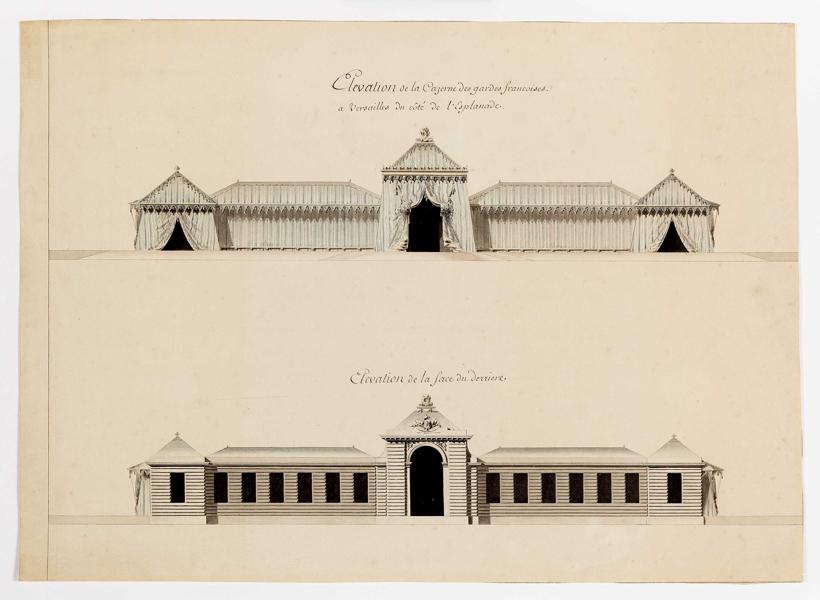 Elevation de la Cazerne des gardes francoises.
a Versailles du côté de l'Esplanade.
Elevation de la face du derriere.